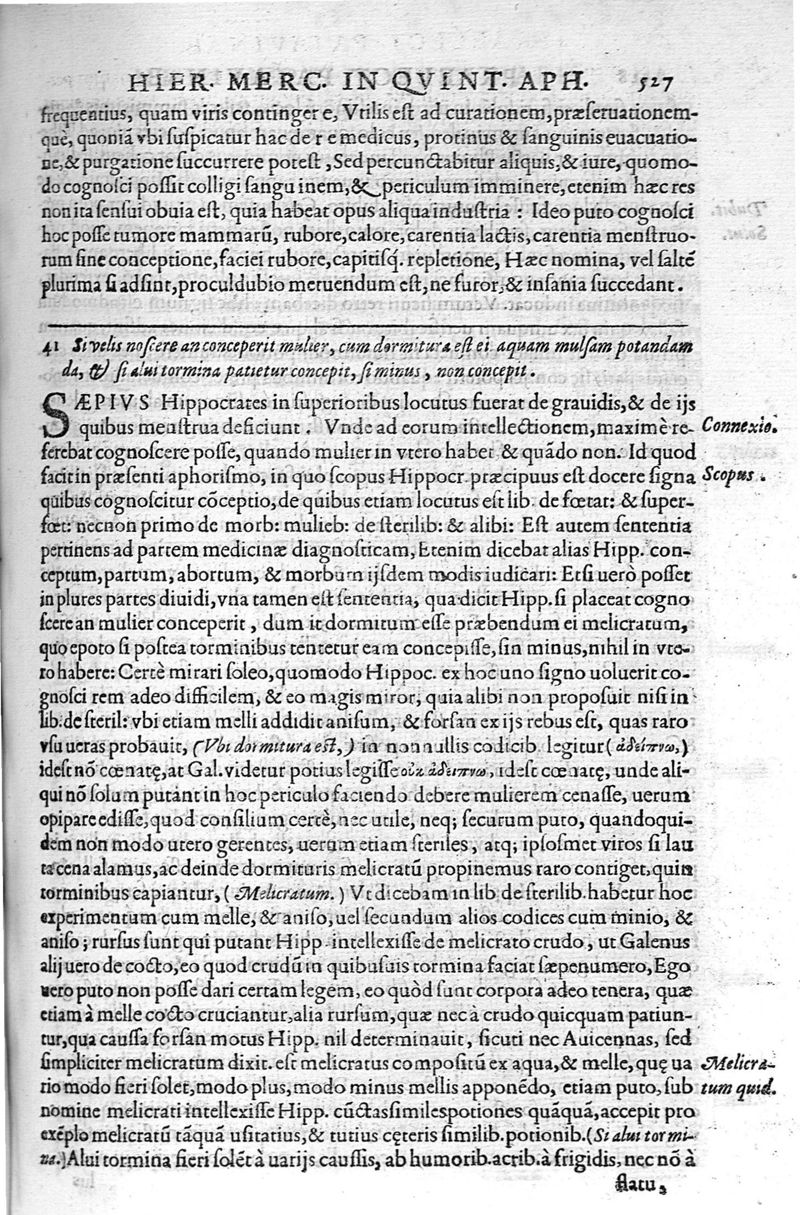 HIER. MERC. IN QVINT. APH. 527
frequentius, quam viris contingere, Vtilis est ad curationem, præseruationem-
què, quoniã vbi suspicatur hac de re medicus, protinus & sanguinis euacuatio-
ne, & purgatione succurrere potest, Sed percunctabitur aliquis, & iure, quomo-
do cognosci possit colligi sanguinem, & periculum imminere, etenim hæc res
non ita sensui obuia est, quia habeat opus aliqua industria: Ideo puto cognosci
hoc posse tumore mammarũ, rubore, calore, carentia lactis, carentia menstruo-
rum sine conceptione, faciei rubore, capitisq́. repletione, Hæc nomina, vel saltẽ
plurima si adsint, proculdubio metuendum est, ne furor, & insania succedant.
41 Si velis noscere an conceperit mulier, cum dormitura est ei aquam mulsam potandam
da, & si alui tormina patietur concepit, si minus, non concepit.
SÆPIVS Hippocrates in superioribus locutus fuerat de grauidis, & de ijs
quibus menstrua deficiunt. Vnde ad eorum intellectionem, maximè re- Connexio.
ferebat cognoscere posse, quando mulier in vtero habet & quãdo non. Id quod
facit in præsenti aphorismo, in quo scopus Hippocr. præcipuus est docere signa Scopus.
quibus cognoscitur cõceptio, de quibus etiam locutus est lib. de fœtat: & super-
fœt: necnon primo de morb: mulieb: de sterilib: & alibi: Est autem sententia
pertinens ad partem medicinæ diagnosticam, Etenim dicebat alias Hipp. con-
ceptum, partum, abortum, & morbum ijsdem modis iudicari: Etsi uerò posset
in plures partes diuidi, vna tamen est sententia, qua dicit Hipp. si placeat cogno
scere an mulier conceperit, dum it dormitum esse præbendum ei melicratum,
quo epoto si postea torminibus tentetur eam concepisse, sin minus, nihil in vte-
ro habere: Certè mirari soleo, quomodo Hippoc. ex hoc uno signo uoluerit co-
gnosci rem adeo difficilem, & eo magis miror, quia alibi non proposuit nisi in
lib. de steril: vbi etiam melli addidit anisum, & forsan ex ijs rebus est, quas raro
vsu ueras probauit, (Vbi dormitura est,) in nonnullis codicib. legitur (ἀδείπνω,)
idest nõ cœnatę, at Gal. videtur potius legisse οὐκ ἀδείπνω, idest cœnatę, unde ali-
qui nõ solum putant in hoc periculo faciendo debere mulierem cenasse, uerum
opipare edisse, quod consilium certè, nec utile, neq; securum puto, quandoqui-
dem non modo utero gerentes, uerum etiam steriles, atq; ipsosmet viros si lau
ta cena alamus, ac deinde dormituris melicratũ propinemus raro contiget, quin
torminibus capiantur, (Melicratum.) Vt dicebam in lib. de sterilib. habetur hoc
experimentum cum melle, & aniso, uel secundum alios codices cum minio, &
aniso; rursus sunt qui putant Hipp. intellexisse de melicrato crudo, ut Galenus
alij uero de cocto, eo quod crudũ in quibusuis tormina faciat sæpenumero, Ego
uero puto non posse dari certam legem, eo quòd sunt corpora adeo tenera, quæ
etiam à melle cocto cruciantur, alia rursum, quæ nec à crudo quicquam patiun-
tur, qua caussa forsan motus Hipp. nil determinauit, sicuti nec Auicennas, sed
simpliciter melicratum dixit. est melicratus compositũ ex aqua, & melle, quę ua Melicra-
rio modo fieri solet, modo plus, modo minus mellis apponẽdo, etiam puto, sub tum quid.
nomine melicrati intellexisse Hipp. cũctas similes potiones quãquã, accepit pro
exẽplo melicratũ tãquã usitatius, & tutius cęteris similib. potionib. (Si alui tormi-
na.) Alui tormina fieri solẽt à uarijs caussis, ab humorib. acrib. à frigidis, nec nõ à
flatu,